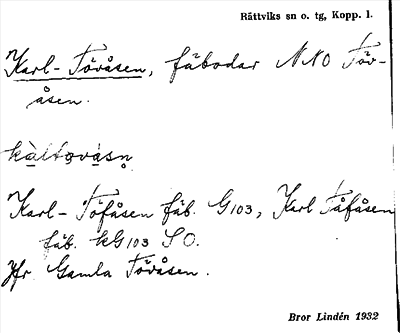 Rättviks sn o. tg, Kopp. l.
Karl-Töråsen, fäbodar NNO Tör-
åsen.
kàltoväsn
Karl-Töfåsen fäb. G103, Karl Tåfåsen
fäb. kG103 SO.
Jfr Gamla Töråsen.
Bror Lindén 1932